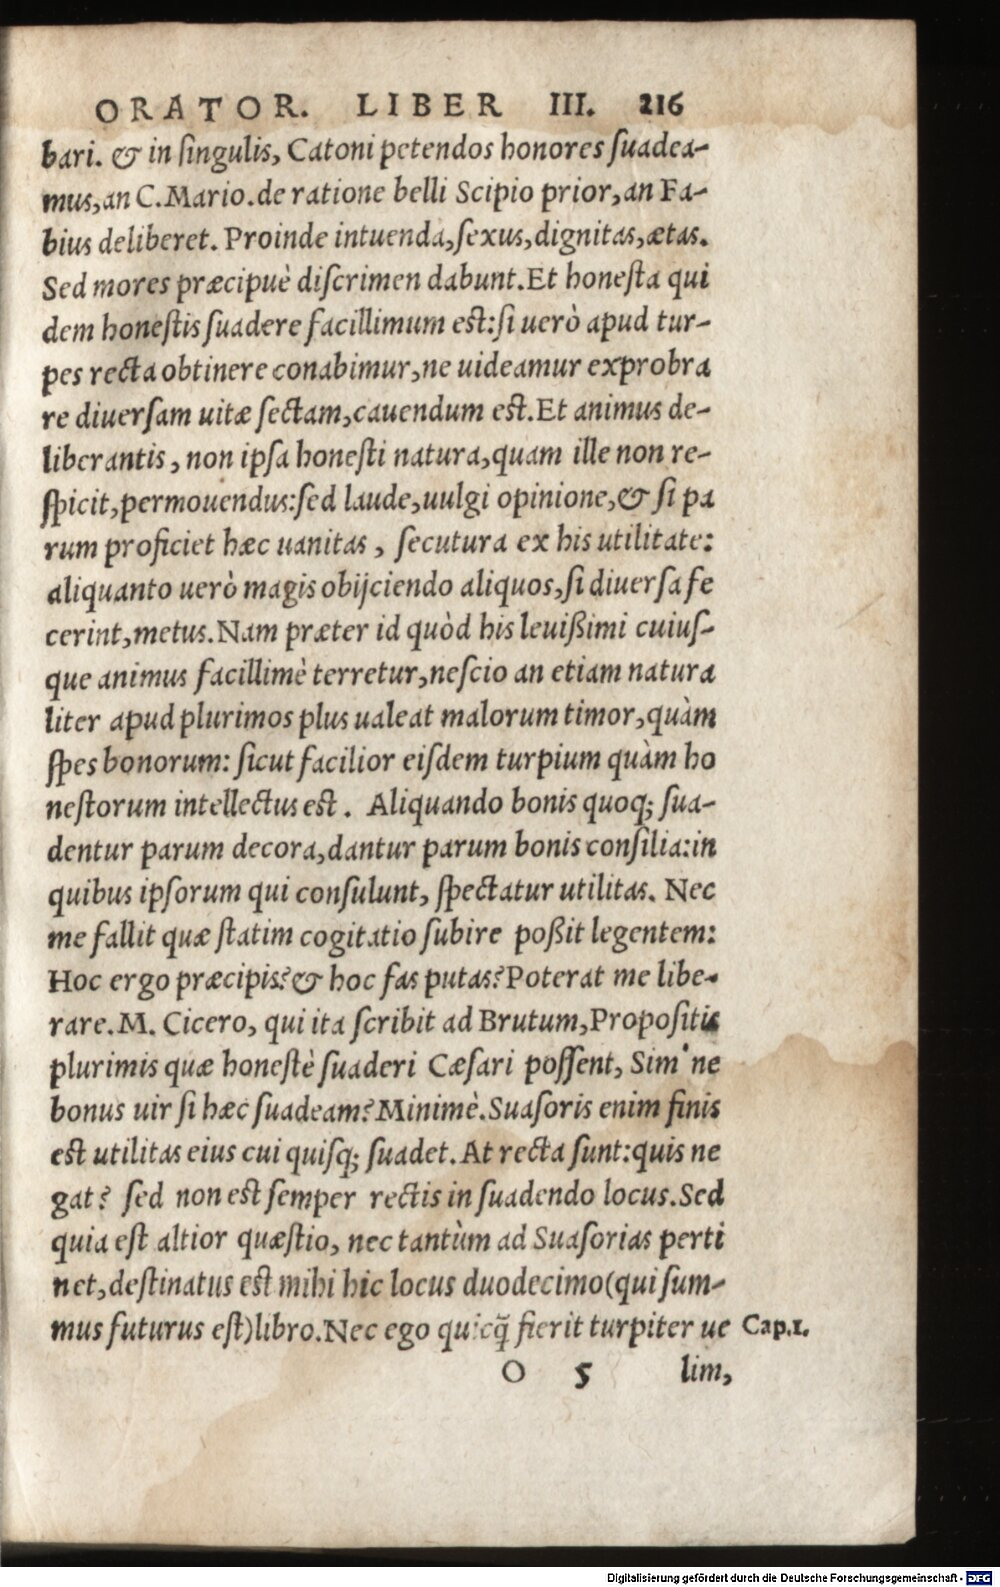 ORATOR. LIBER III. 216
bari. & in singulis, Catoni petendos honores suadea-
mus, an C. Mario. de ratione belli Scipio prior, an Fa-
bius deliberet. Proinde intuenda, sexus, dignitas, ætas.
Sed mores præcipuè discrimen dabunt. Et honesta qui
dem honestis suadere facillimum est: si uerò apud tur-
pes recta obtinere conabimur, ne uideamur exprobra
re diuersam uitæ sectam, cauendum est. Et animus de-
liberantis, non ipsa honesti natura, quam ille non re-
spicit, permouendus: sed laude, uulgi opinione, & si pa
rum proficiet hæc uanitas, secutura ex his utilitate:
aliquanto uerò magis obijciendo aliquos, si diuersa fe
cerint, metus. Nam præter id quòd his leuißimi cuius-
que animus facillimè terretur, nescio an etiam natura
liter apud plurimos plus ualeat malorum timor, quàm
spes bonorum: sicut facilior eisdem turpium quàm ho
nestorum intellectus est. Aliquando bonis quoq; sua-
dentur parum decora, dantur parum bonis consilia: in
quibus ipsorum qui consulunt, spectatur utilitas. Nec
me fallit quæ statim cogitatio subire poßit legentem:
Hoc ergo præcipis? & hoc fas putas? Poterat me libe-
rare. M. Cicero, qui ita scribit ad Brutum, Propositis
plurimis quæ honestè suaderi Cæsari possent, Sim'ne
bonus uir si hæc suadeam? Minimè. Suasoris enim finis
est utilitas eius cui quisq; suadet. At recta sunt: quis ne
gat? sed non est semper rectis in suadendo locus. Sed
quia est altior quæstio, nec tantùm ad Suasorias perti
net, destinatus est mihi hic locus duodecimo (qui sum-
mus futurus est) libro. Nec ego quicq̃ fierit turpiter ue Cap.1.
O 5 lim,
Digitalisierung gefördert durch die Deutsche Forschungsgemeinschaft - DFG